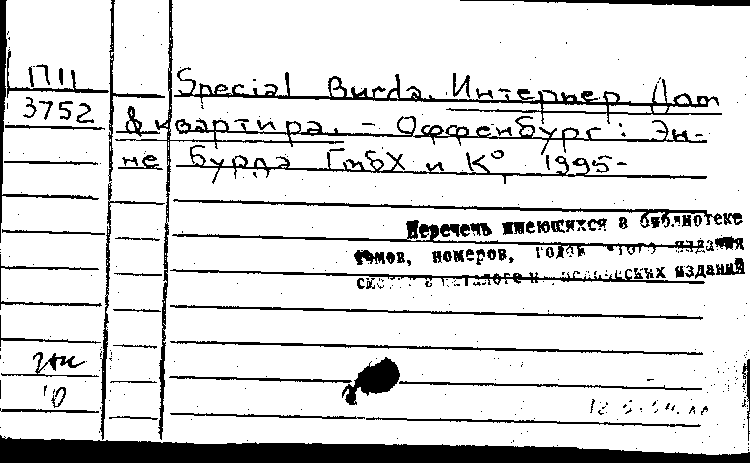 П11
3752
Special Burda. Интерьер. Дом
& квартира. – Оффенбург: Эн-
не Бурда ГмбХ и К°, 1995-
Перечень имеющихся в библиотеке
томов, номеров, годов этого издания
смотри в каталоге периодических изданий
10